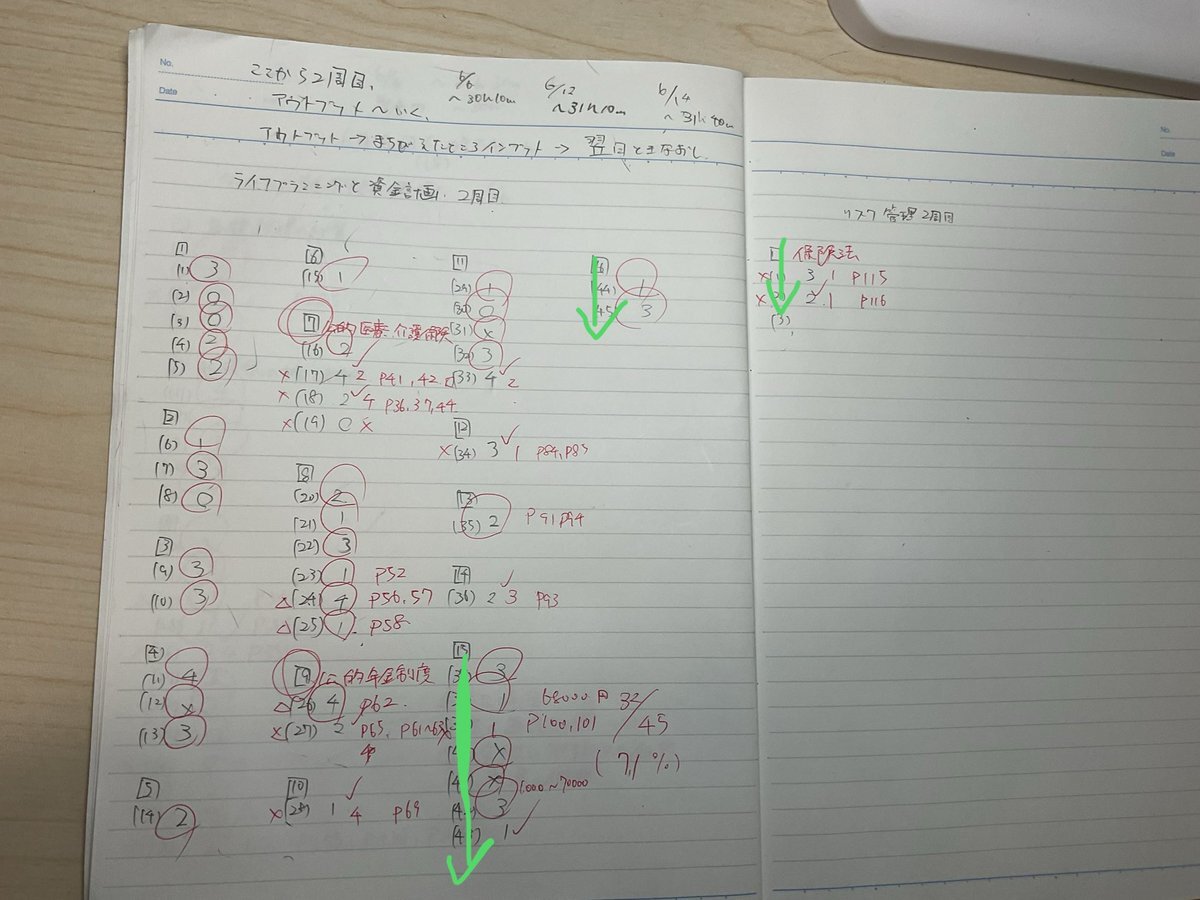 No.
Date
ここから2周目、
アウトプット〜いく、
6/6
〜30h10m
6/12
〜31h10m
6/14
〜31h40m
アウトプット→まちがえたところインプット→翌日ときなおし
ライフプランニングと資金計画 2周目
1
(1) 3
(2) 0
(3) 0
(4) 2
(5) 2
2
(6) 1
(7) 3
(8) 0
3
(9) 3
(10) 3
4
(11) 4
(12) ×
(13) 3
5
(14) 2
6
(15) 1
7 公的医療、介護保険
(16) 2
×(17) 4 2 P41, 42
×(18) 2 4 P36, 37, 44
×(19) 0 ×
8
(20) 2
(21) 1
(22) 3
(23) 1 P52
△(24) 4 P56, 57
△(25) 1 P58
9 公的年金制度
△(26) 4 P62
×(27) 2 P65, P61~63
4
10
×(28) 1 4 P69
11
(29) 1
(30) 0
(31) ×
(32) 3
(33) 4 2
12
×(34) 3 1 P84, P85
13
(35) 2 P91 P94
14
(36) 2 3 P93
15
3
1 68000円
1 P100, 101
×
×
3
1
32/45
(71%)
16
(44) 1
(45) 3
No.
Date
リスク管理 2周目
1 保険法
×(1) 3 1 P115
×(2) 2 1 P116
(3)